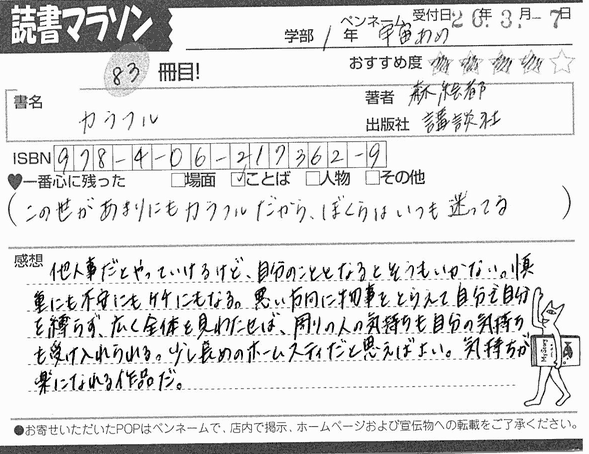 読書マラソン
学部 1年 ペンネーム 宇宙あめ 受付日 20年3月-7日
83冊目!
おすすめ度 ★★★★☆
書名 カラフル
著者 森絵都
出版社 講談社
ISBN 978-4-06-217362-9
♥一番心に残った □場面 ☑ことば □人物 □その他
(この世があまりにもカラフルだから、ぼくらはいつも迷ってる)
感想
他人事だとやっていけるけど、自分のこととなるとそうもいかない。慎
重にも不安にもケチにもなる。悪い方向に物事をとらえて自分で自分
を縛らず、広く全体を見わたせば、周りの人の気持ちも自分の気持ち
も受け入れられる。少し長めのホームステイだと思えばよい。気持ちが
楽になれる作品だ。
●お寄せいただいたPOPはペンネームで、店内で掲示、ホームページおよび宣伝物への転載をご了承ください。